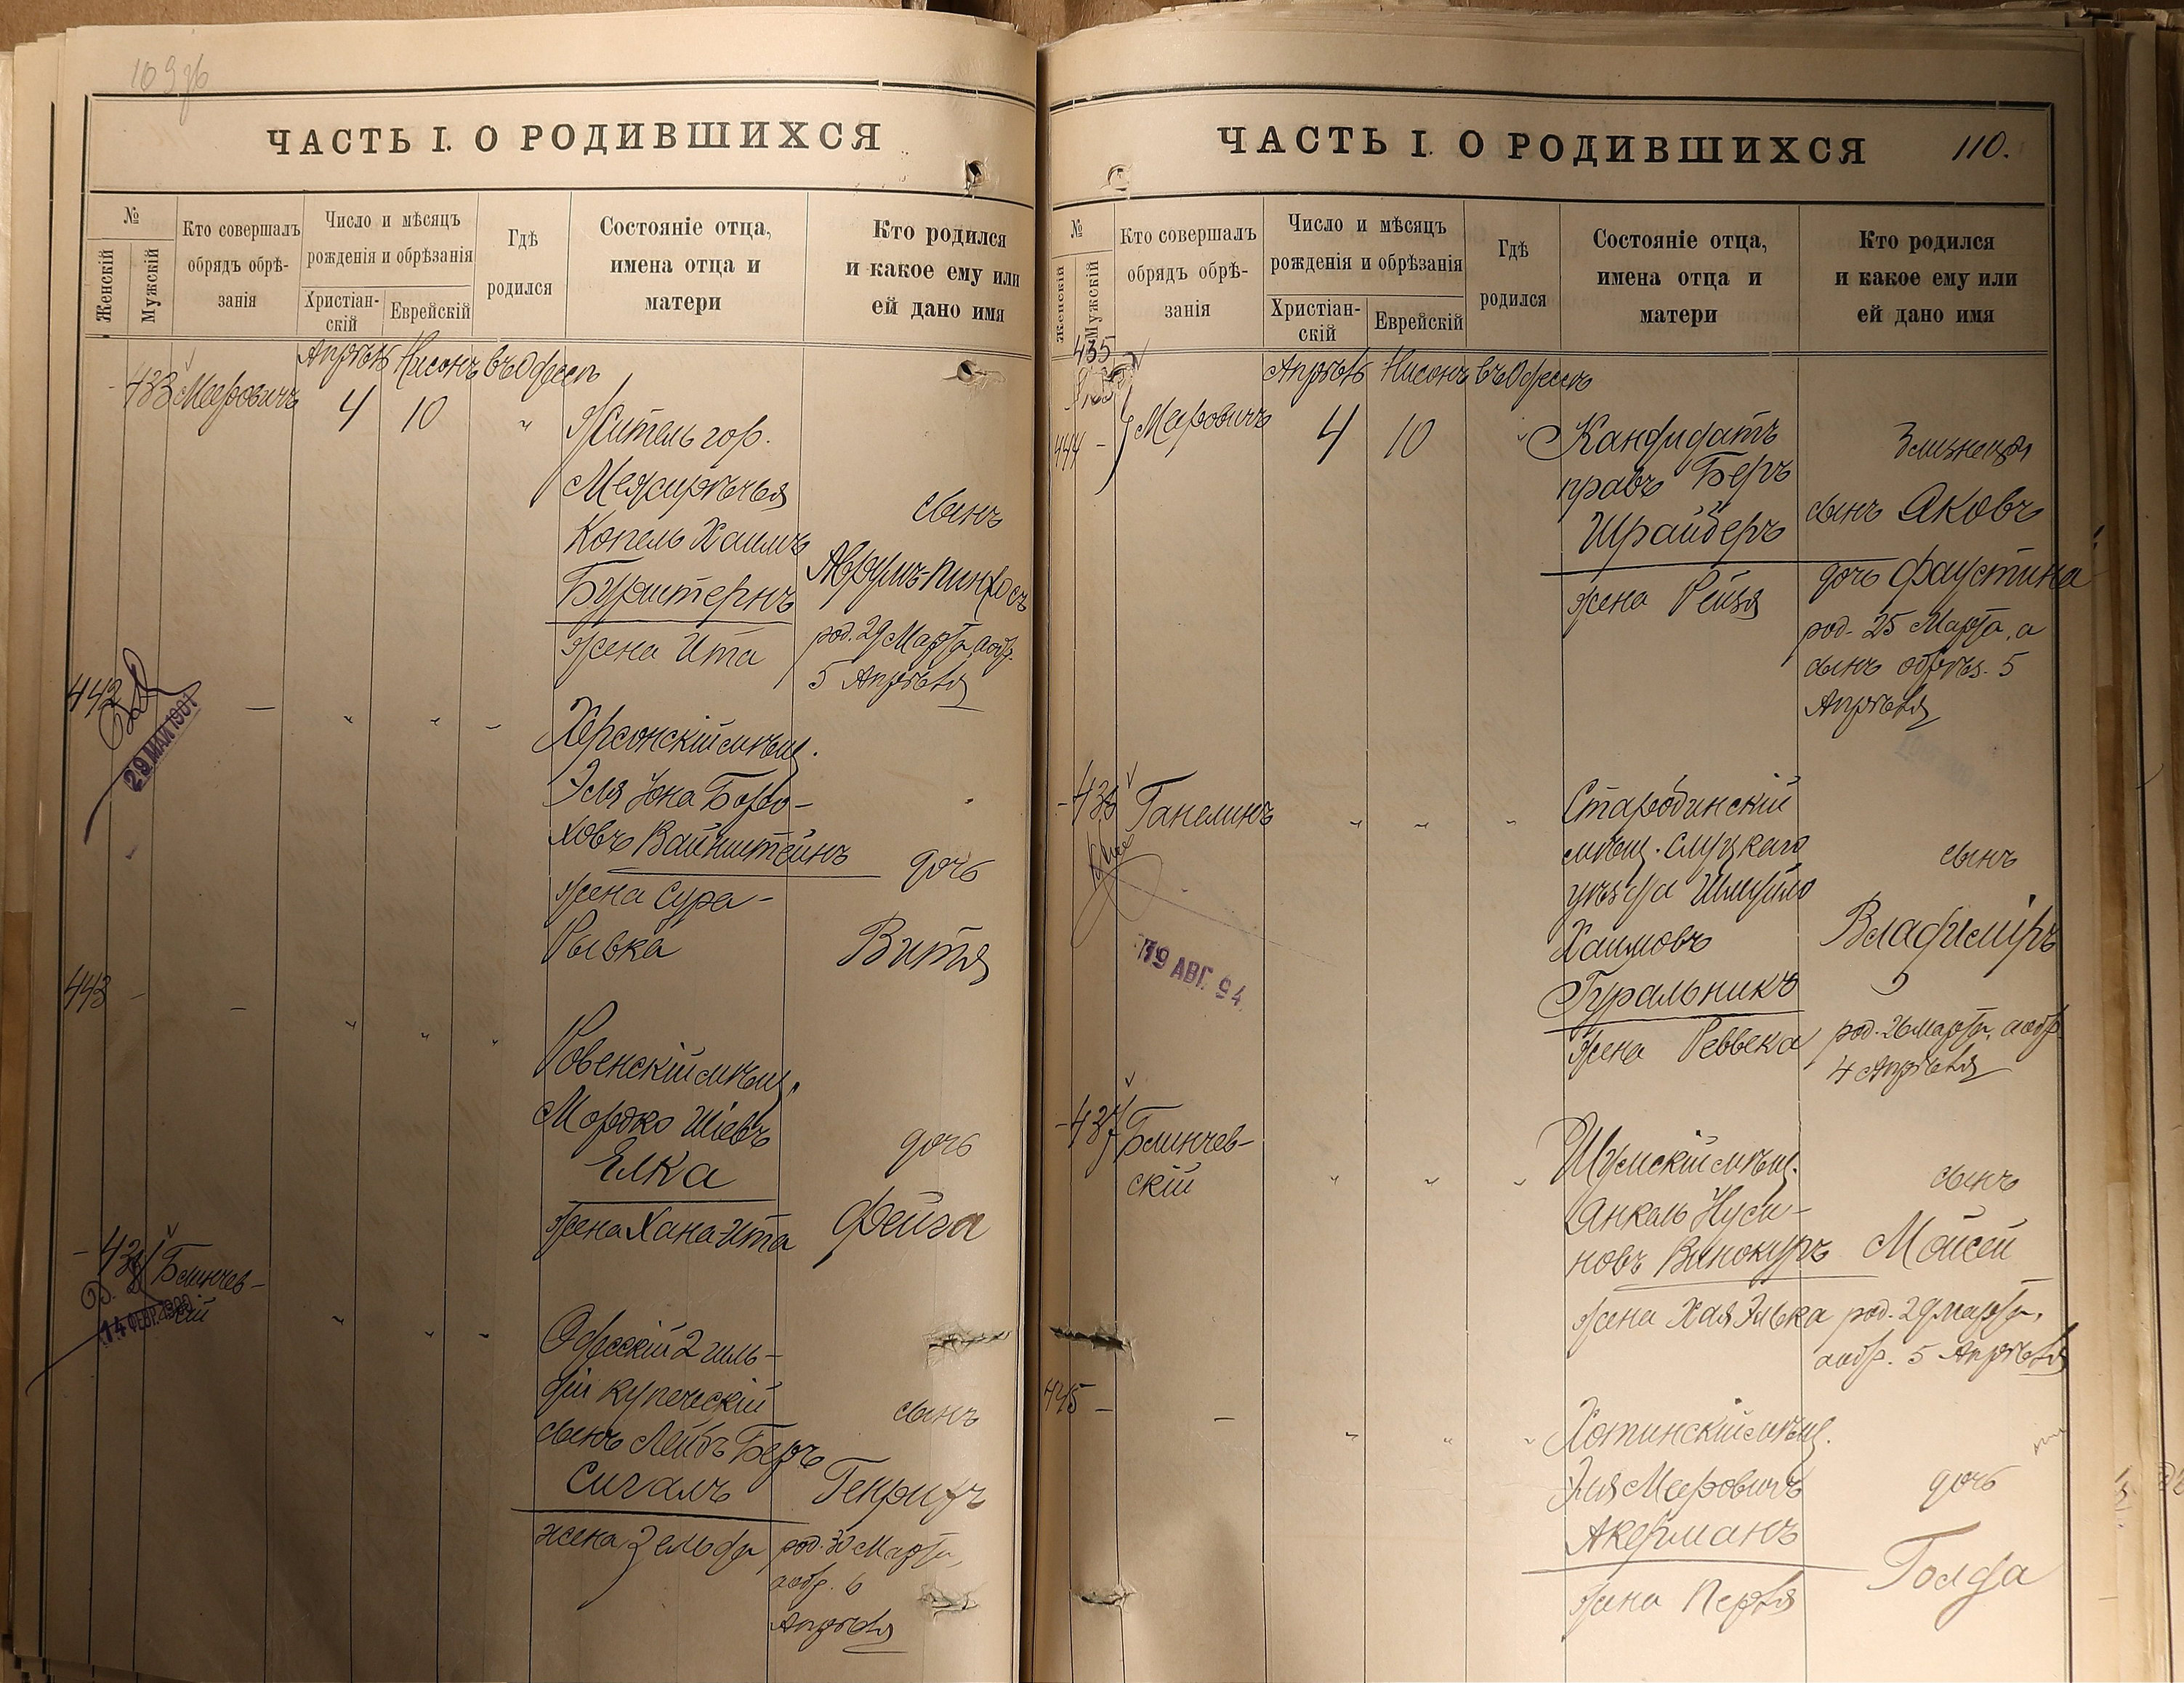 ЧАСТЬ I. О РОДИВШИХСЯ
№
Женскій
Мужскій
Кто совершалъ
обрядъ обрѣ-
занія
Число и мѣсяцъ
рожденія и обрѣзанія
Христіан-
скій
Еврейскій
Гдѣ
родился
Состояніе отца,
имена отца и
матери
Кто родился
и какое ему или
ей дано имя
Апрѣль Нисонъ въ Одессѣ
433 Меровичъ 4 10 "
Житель гор.
Межирѣчья
Копель Хаимъ
Бурштернъ
жена Ита
сынъ
Аврумъ-Пинхосъ
род. 29 Марта, а обр.
5 Апрѣля
442 — " " "
29 МАЙ 1901
Херсонскій мѣщ.
Эля Іона Боро-
ховъ Вайнштейнъ
жена Сура-
Рывка
дочь
Витя
443 - — " " "
Ровенскій мѣщ.
Мордко Шіевъ
Елка
жена Хана-Ита
дочь
Фейга
- 434 Блинчев-
скій " " "
14 ФЕВР. 1900
Одесскій 2 гиль-
діи купеческій
сынъ Лейбъ Беръ
Сигалъ
жена Зельда
сынъ
Генрихъ
род. 30 Марта,
а обр. 6
Апрѣля
ЧАСТЬ I. О РОДИВШИХСЯ 110.
№
Женскій
Мужскій
Кто совершалъ
обрядъ обрѣ-
занія
Число и мѣсяцъ
рожденія и обрѣзанія
Христіан-
скій
Еврейскій
Гдѣ
родился
Состояніе отца,
имена отца и
матери
Кто родился
и какое ему или
ей дано имя
435
Апрѣль Нисонъ въ Одессѣ
444 - Меровичъ 4 10 "
Кандидатъ
правъ Беръ
Шрайберъ
жена Рейзя
Близнецы
сынъ Яковъ
дочь Фаустина
род. 25 Марта, а
сынъ обрѣз. 5
Апрѣля
- 436 Ганелинъ " " "
19 АВГ. 94
Старобинскій
мѣщ. Слуцкаго
уѣзда Шмуйло
Хаимовъ
Гуральникъ
жена Реввека
сынъ
Владиміръ
род. 26 марта, а обр.
4 Апрѣля
- 437 Блинчев-
скій " " "
Шумскій мѣщ.
Янкель Нуси-
новъ Винокуръ
жена Хая Элька
сынъ
Мойсей
род. 29 марта,
а обр. 5 Апрѣля
445 - — " " "
Хотинскій мѣщ.
Эля Меровичъ
Акерманъ
жена Перля
дочь
Голда